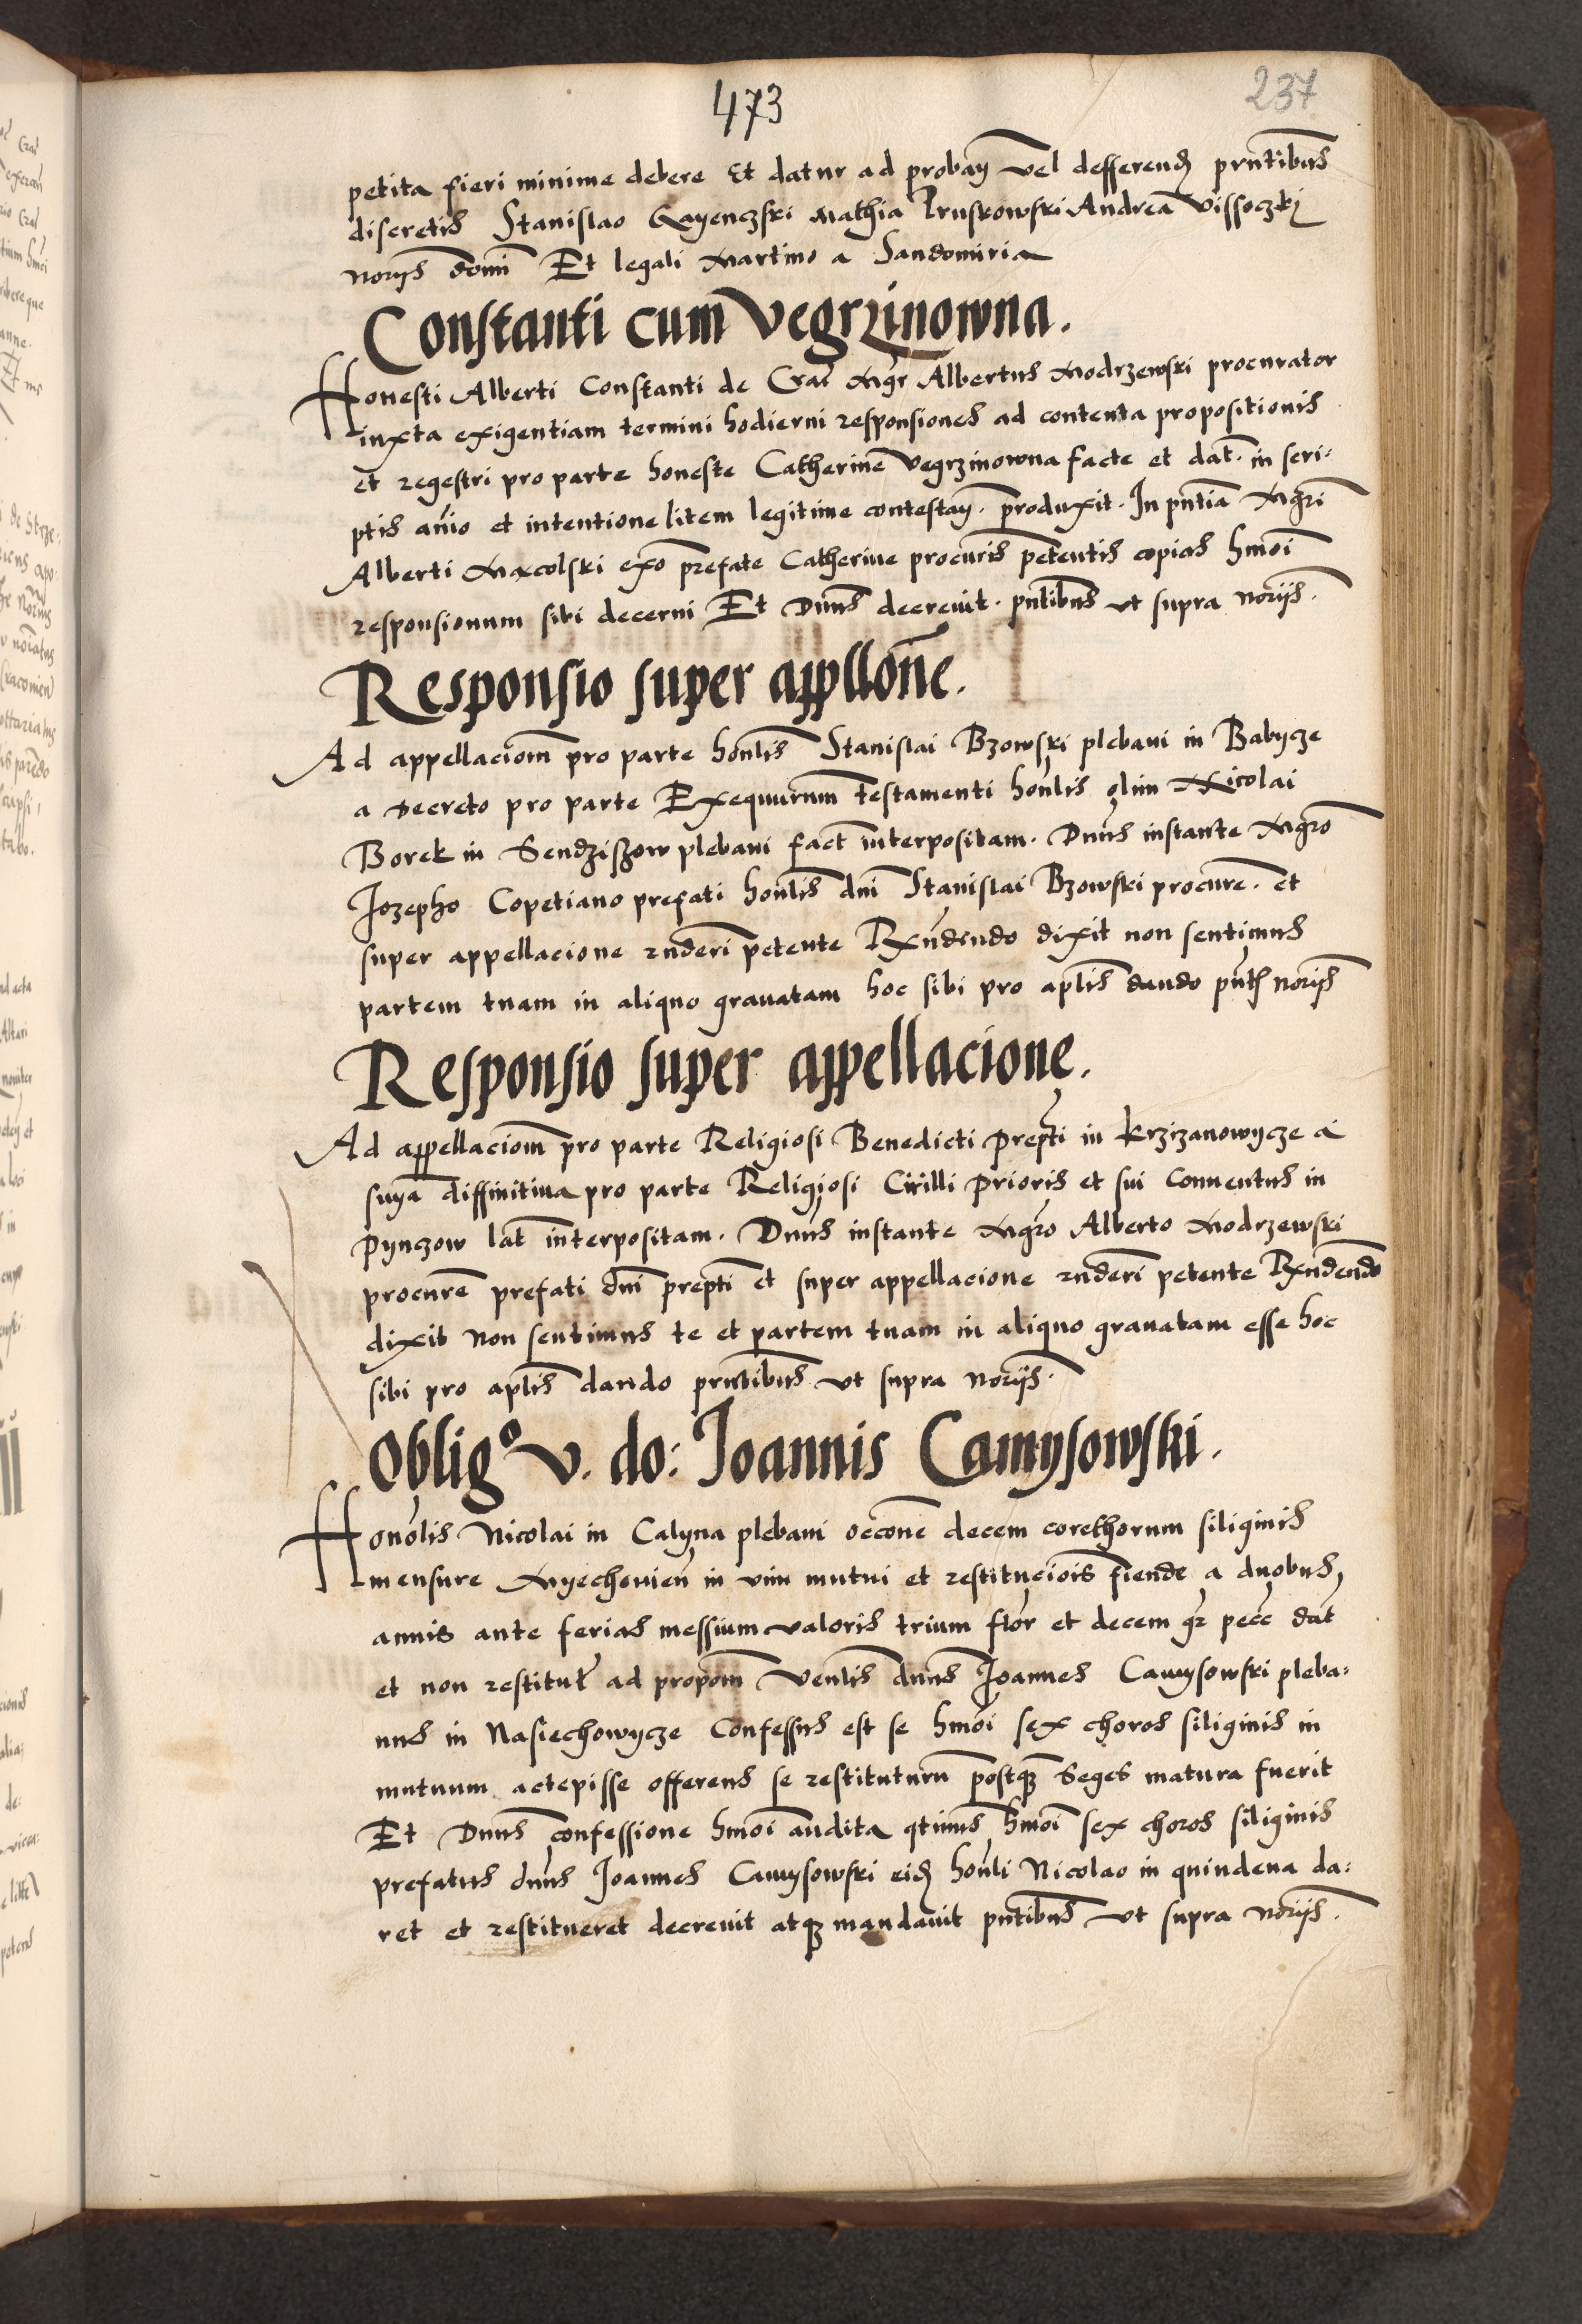 473
237
petita fieri minime debere Et datur ad probañ vel defferend prñtibus
discretis Stanislao Gayenczski Mathia Pruskowski Andrea Vissoczki
noriis domi Et legali Martino a Sandomiria
Constanti cum Vegrzinowna.
Honesti Alberti Constanti de Crac Mgr Albertus Modrzewski procurator
iuxta exigentiam termini hodierni responsiones ad contenta propositionis
et regestri pro parte honeste Catherine Vegrzinowna facte et dat. in scri-
ptis animo et intentione litem legitime contestañ. produxit. In pñtia Mgri
Alberti exo prefate Catherine procuris petentis copias hmõi
responsionum sibi decerni Et Dnus decrevit. pñtibus ut supra noriis.
Responsio super appllone.
Ad appellaciom pro parte honlis Stanislai Bzowski plebani in Babycze
a decreto pro parte Exequurum testamenti honlis olim Nicolai
Borek in Sendziszow plebani fact interpositam. Dnus instante Mgro
Jozepho Copetiano prefati honlis dni Stanislai Bzowski procure. et
super appellacione rnderi petente Rñdendo dixit non sentimus
partem tuam in aliquo gravatam hoc sibi pro aplis dando pñt noriis
Responsio super appellacione.
Ad appellaciom pro parte Religiosi Benedicti prepti in Krzizanowycze a
suya diffinitiva pro parte Religiosi Cirilli prioris et sui Conventus in
Pynczow lat interpositam. Dnus instante Mgro Alberto Modrzewski
procure prefati dni prepti et super appellacione rnderi petente Rñdendo
dixit non sentimus te et partem tuam in aliquo gravatam esse hoc
sibi pro aplis dando prñtibus ut supra noriis.
Oblig° v. do: Joannis Camysowski.
Honolis Nicolai in Calyna plebani occone decem corethorum siliginis
mensure Myechovien in vim mutui et restituciois fiende a duobus
annis ante ferias messium valoris trium flor et decem gr pecc dat
et non restitut ad propom Venlis dnus Joannes Camysowski pleba-
nus in Nasiechowycze Confessus est se hmõi sex choros siliginis in
mutuum accepisse offerens se restituturu postq Seges matura fuerit
Et Dnus confessione hmõi audita qtinus hmõi sex choros siliginis
prefatus dnus Joannes Camysowski eid honli Nicolao in quindena da-
ret et restitueret decrevit atq mandavit pñtibus ut supra noriis.